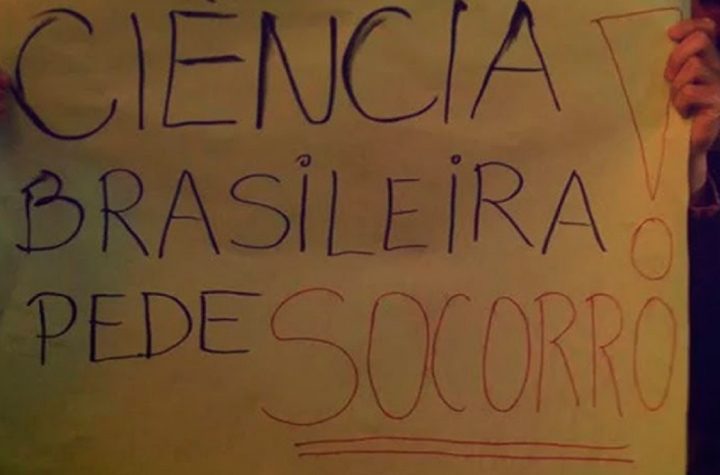 CIÊNCIA!
BRASILEIRA
PEDE SOCORRO